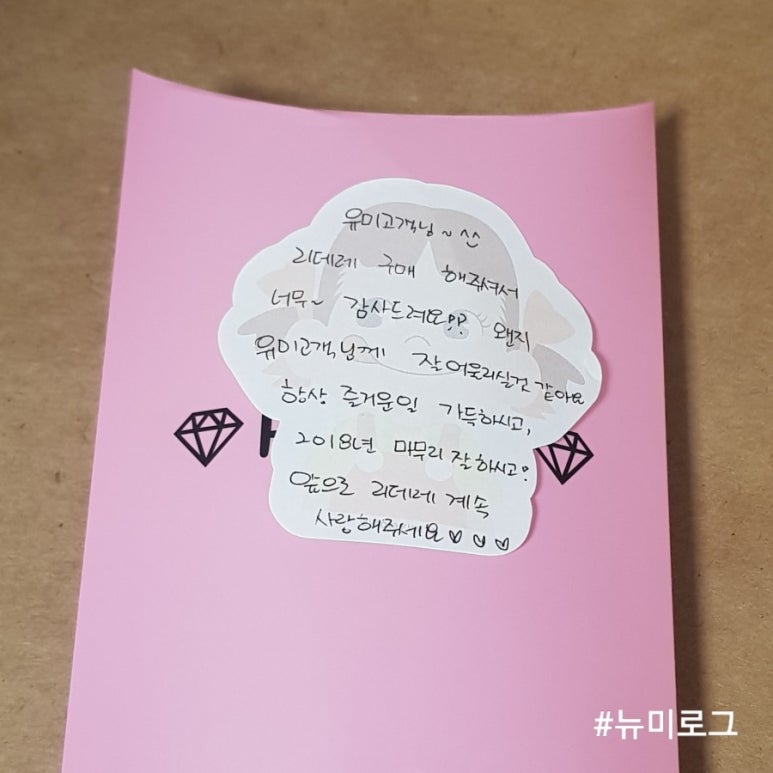 유미고객님~^^
리데레 구매 해주셔서
너무~ 감사드려요!? 왠지
유미고객님께 잘어울리실것 같아요
항상 즐거운일 가득하시고,
2018년 마무리 잘하시고!
앞으로 리데레 계속
사랑해주세요♡♡♡
#뉴미로그